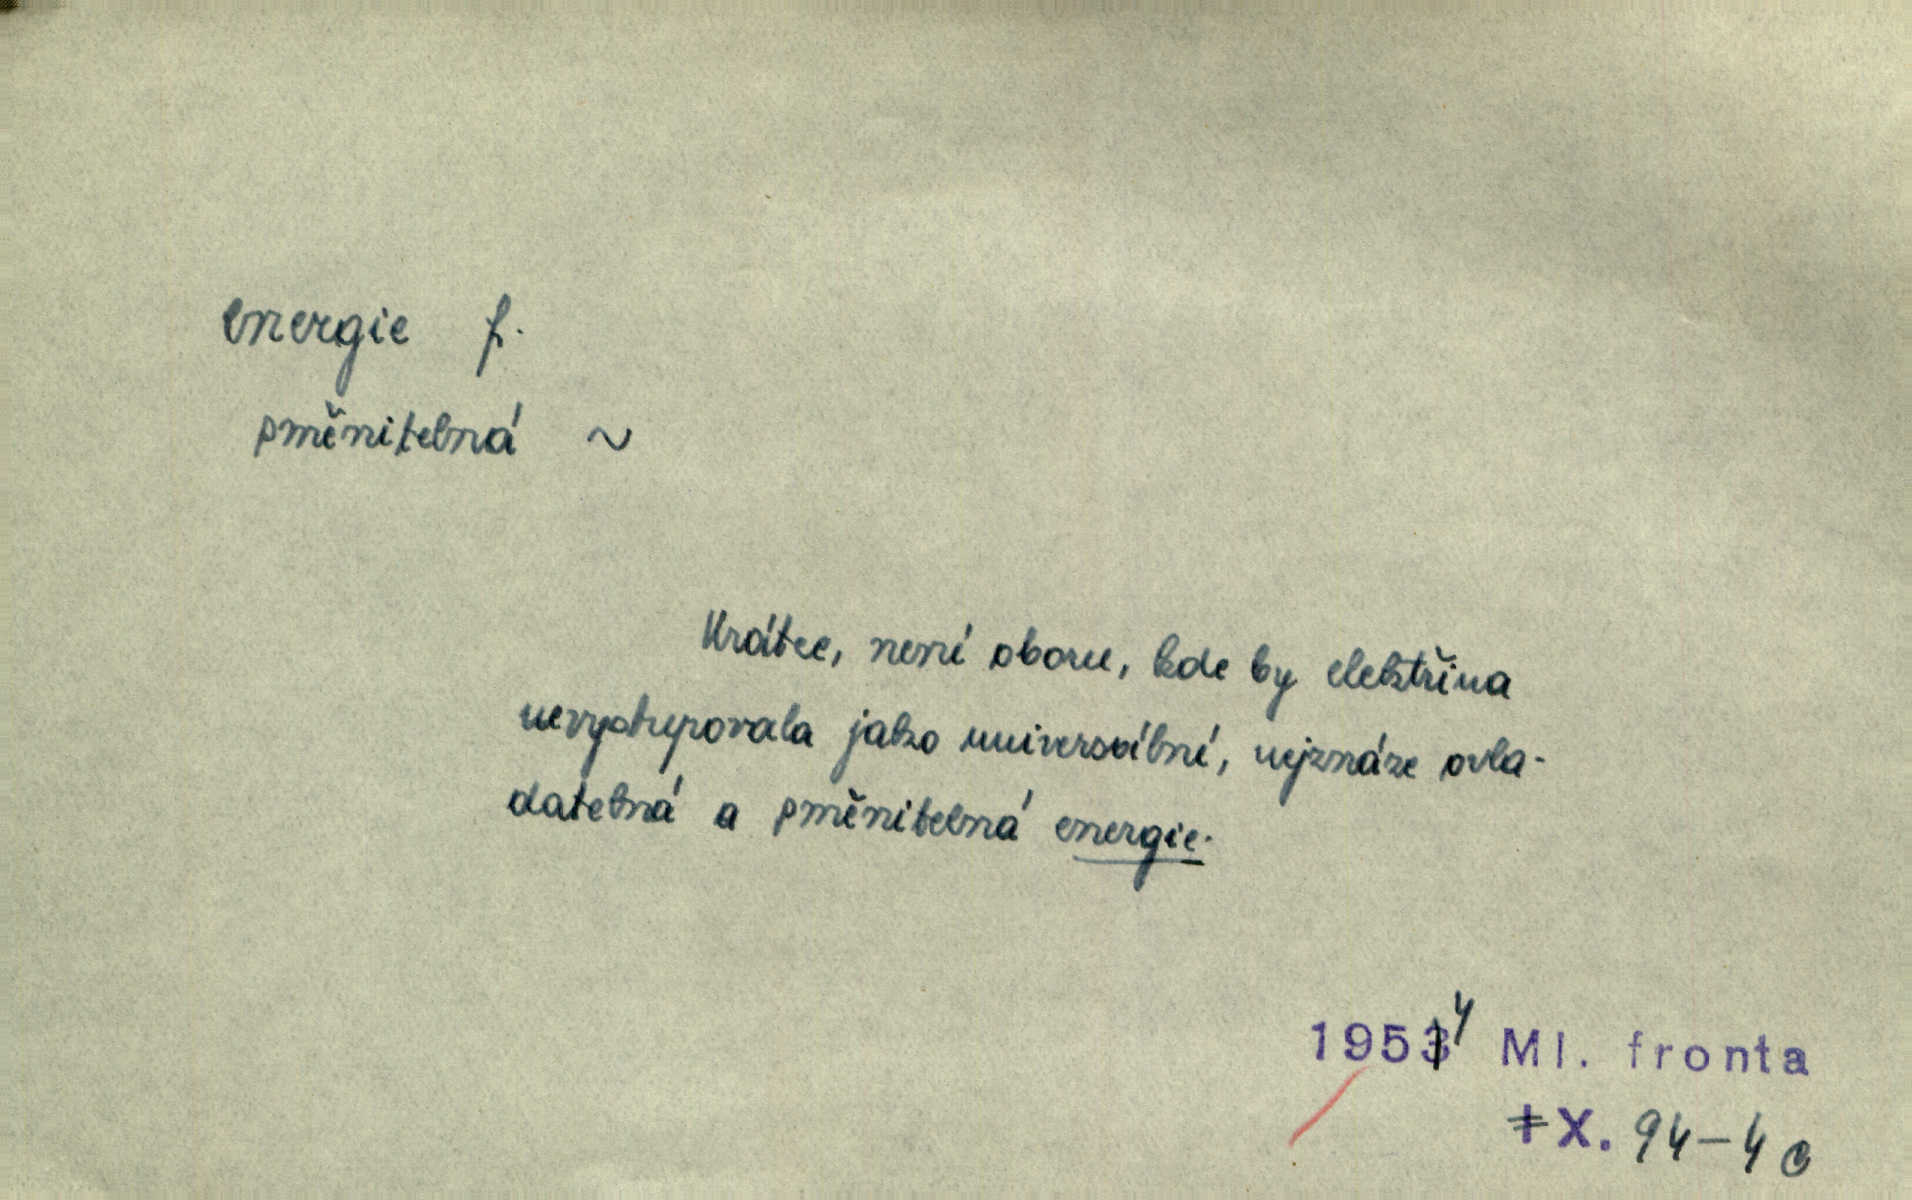 energie f.
pměnitelná ~
Krátce, není oboru, kde by elektřina
nevystupovala jako universální, nejsnáze ovla-
datelná a pměnitelná energie.
1954 Ml. fronta
X. 94-4 c